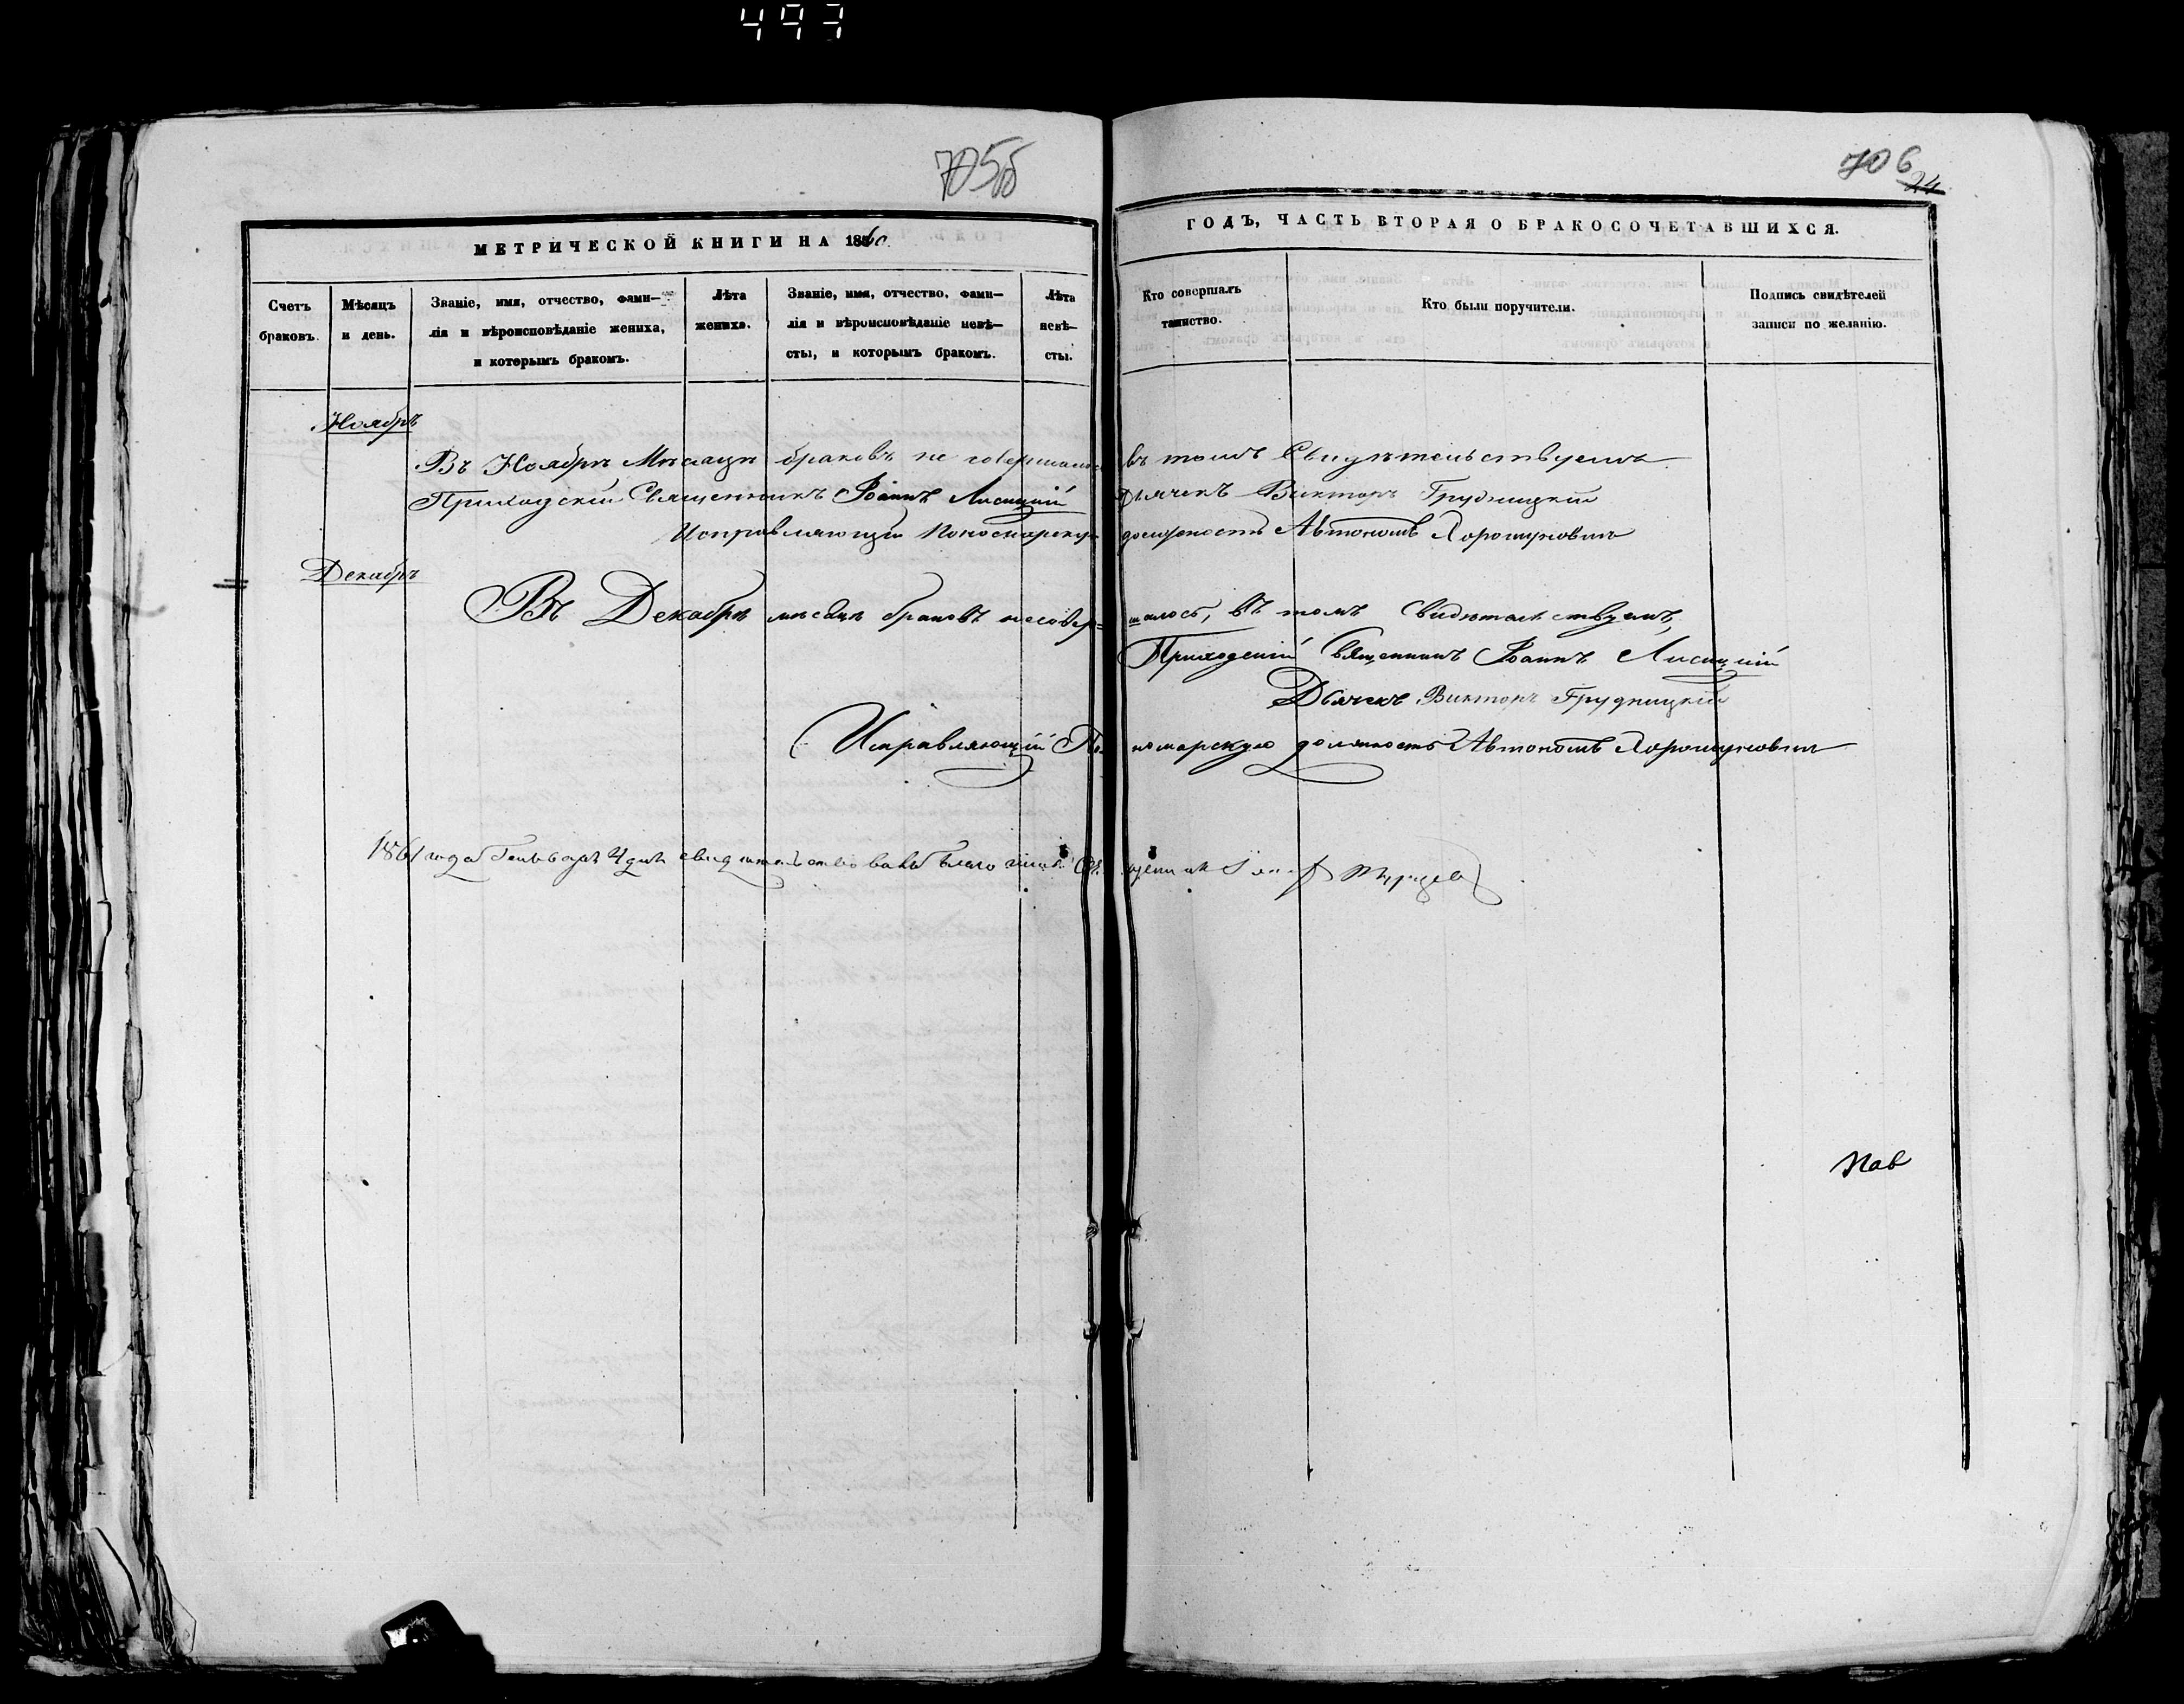 497
705б
706
24
МЕТРИЧЕСКОЙ КНИГИ НА 1860
ГОДЪ, ЧАСТЬ ВТОРАЯ О БРАКОСОЧЕТАВШИХСЯ.
Счетъ
браковъ.
Мѣсяцъ
и день.
Званіе, имя, отчество, фами—
лія и вѣроисповѣданіе жениха,
и которымъ бракомъ.
Лѣта
жениха.
Званіе, имя, отчество, фами—
лія и вѣроисповѣданіе невѣ—
сты, и которымъ бракомъ.
Лѣта
невѣ—
сты.
Кто совершалъ
таинство.
Кто были поручители.
Подпись свидѣтелей
записи по желанію.
Ноябрь
Въ Ноябрѣ Мѣсяцѣ браковъ не совершалось въ томъ Свидѣтельствуемъ
Приходскій Священникъ Іоаннъ Лисицкій Дьячекъ Викторъ Грудницкій
Исправляющій Пономарскую должность Автономъ
Декабрь
Въ Декабрѣ мѣсяцѣ браковъ несовер= шалось, въ томъ Свидѣтельствуемъ,
Приходскій Священникъ Іоаннъ Лисицкій
Дьячекъ Викторъ Грудницкій
Исправляющій Пономарскую должность Автономъ
1861 года Генваря 4 дня свидѣтельствовалъ